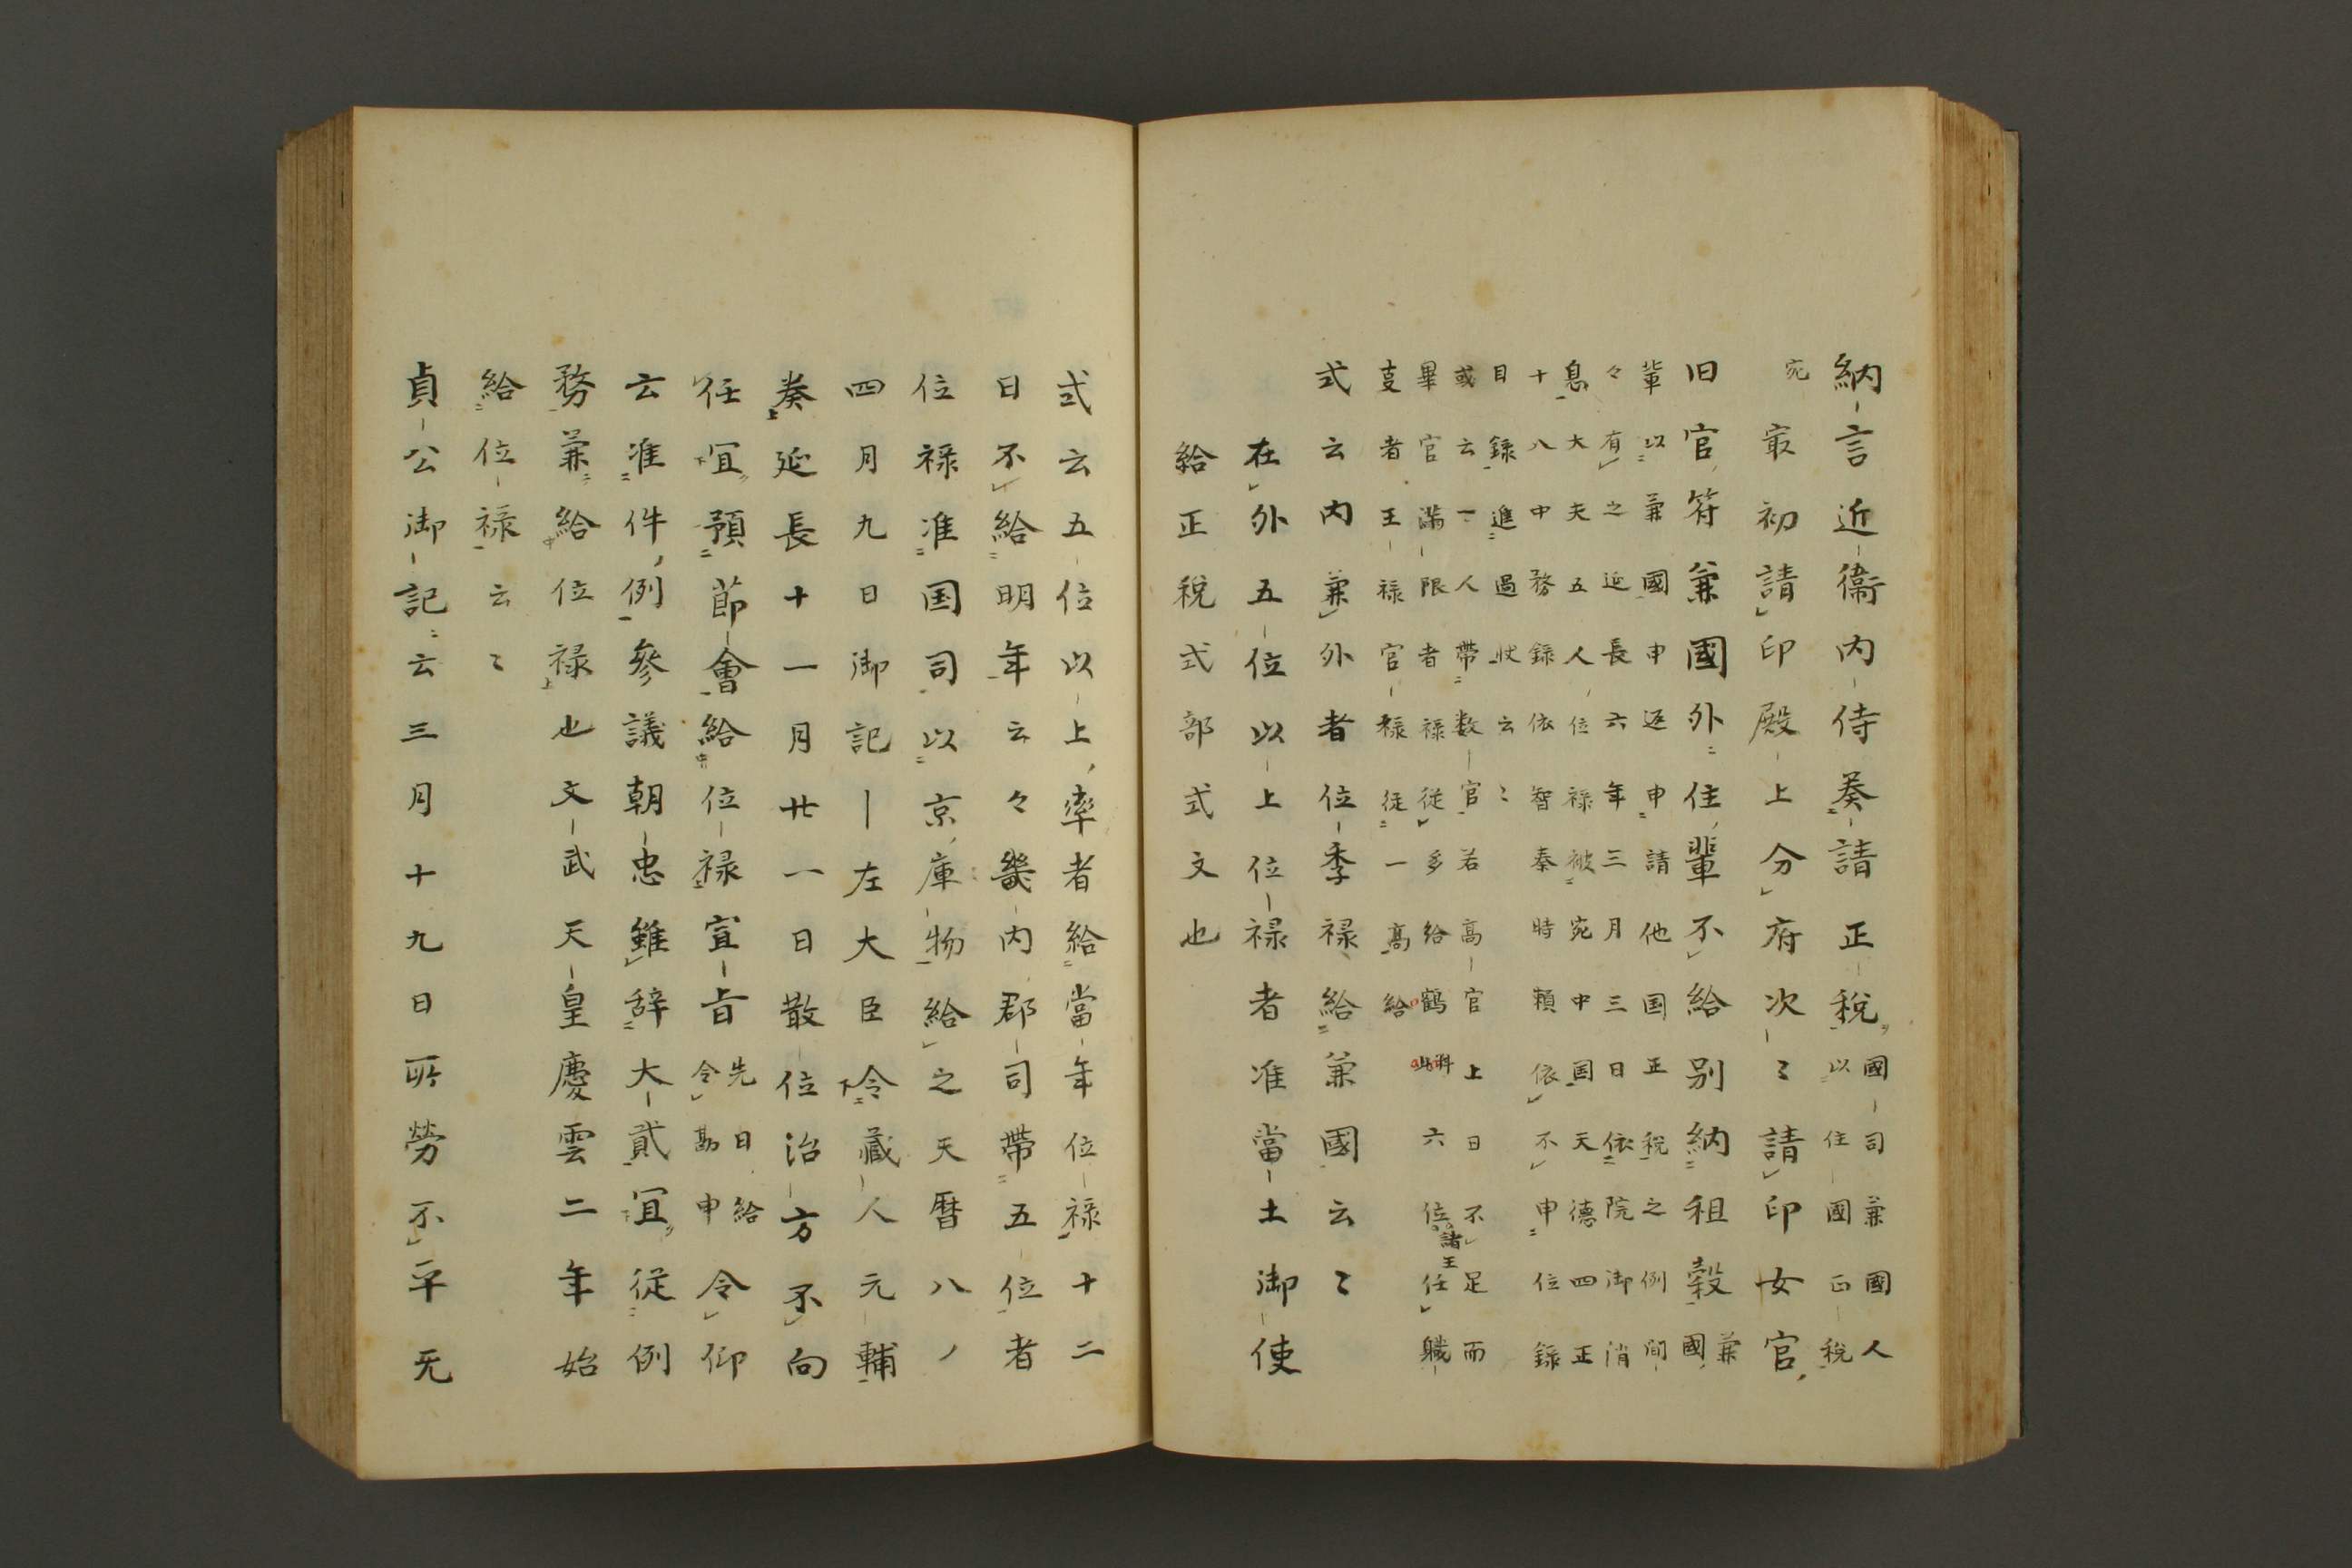 納言近衞内侍奏請正税國司兼國人以住國正税
宛
最初請印殿上分府次〻請印女官
旧官符兼國外住輩不給別納租穀兼國
輩以兼國申返申請他国正税之例間
々有之延長六年三月三日依院御消
息大夫五人位禄被宛中国天德四正
十八中務録依智秦時頼依不申位録
目録進過状云〻
或云一人帶数官若高官上日不足而
畢官満限者禄從多給鶴料此六位諸王任職
支者王禄官禄從一高給
式云内兼外者位季禄給兼國云〻
在外五位以上位禄者准當土御使
給正税式部式文也
式云五位以上率者給當年位禄十二
日不給明年云々畿内郡司帶五位者
位禄准国司以京庫物給之天暦八ノ
四月九日御記―左大臣令藏人元輔
奏延長十一月廿一日散位治方不向
任宜預節會給位禄宣旨先日給令勘申令仰
云准件例參議朝忠雖辞大貳宜從例
務兼給位禄也文武天皇慶雲二年始
給位禄云〻
貞公御記云三月十九日所勞不平无